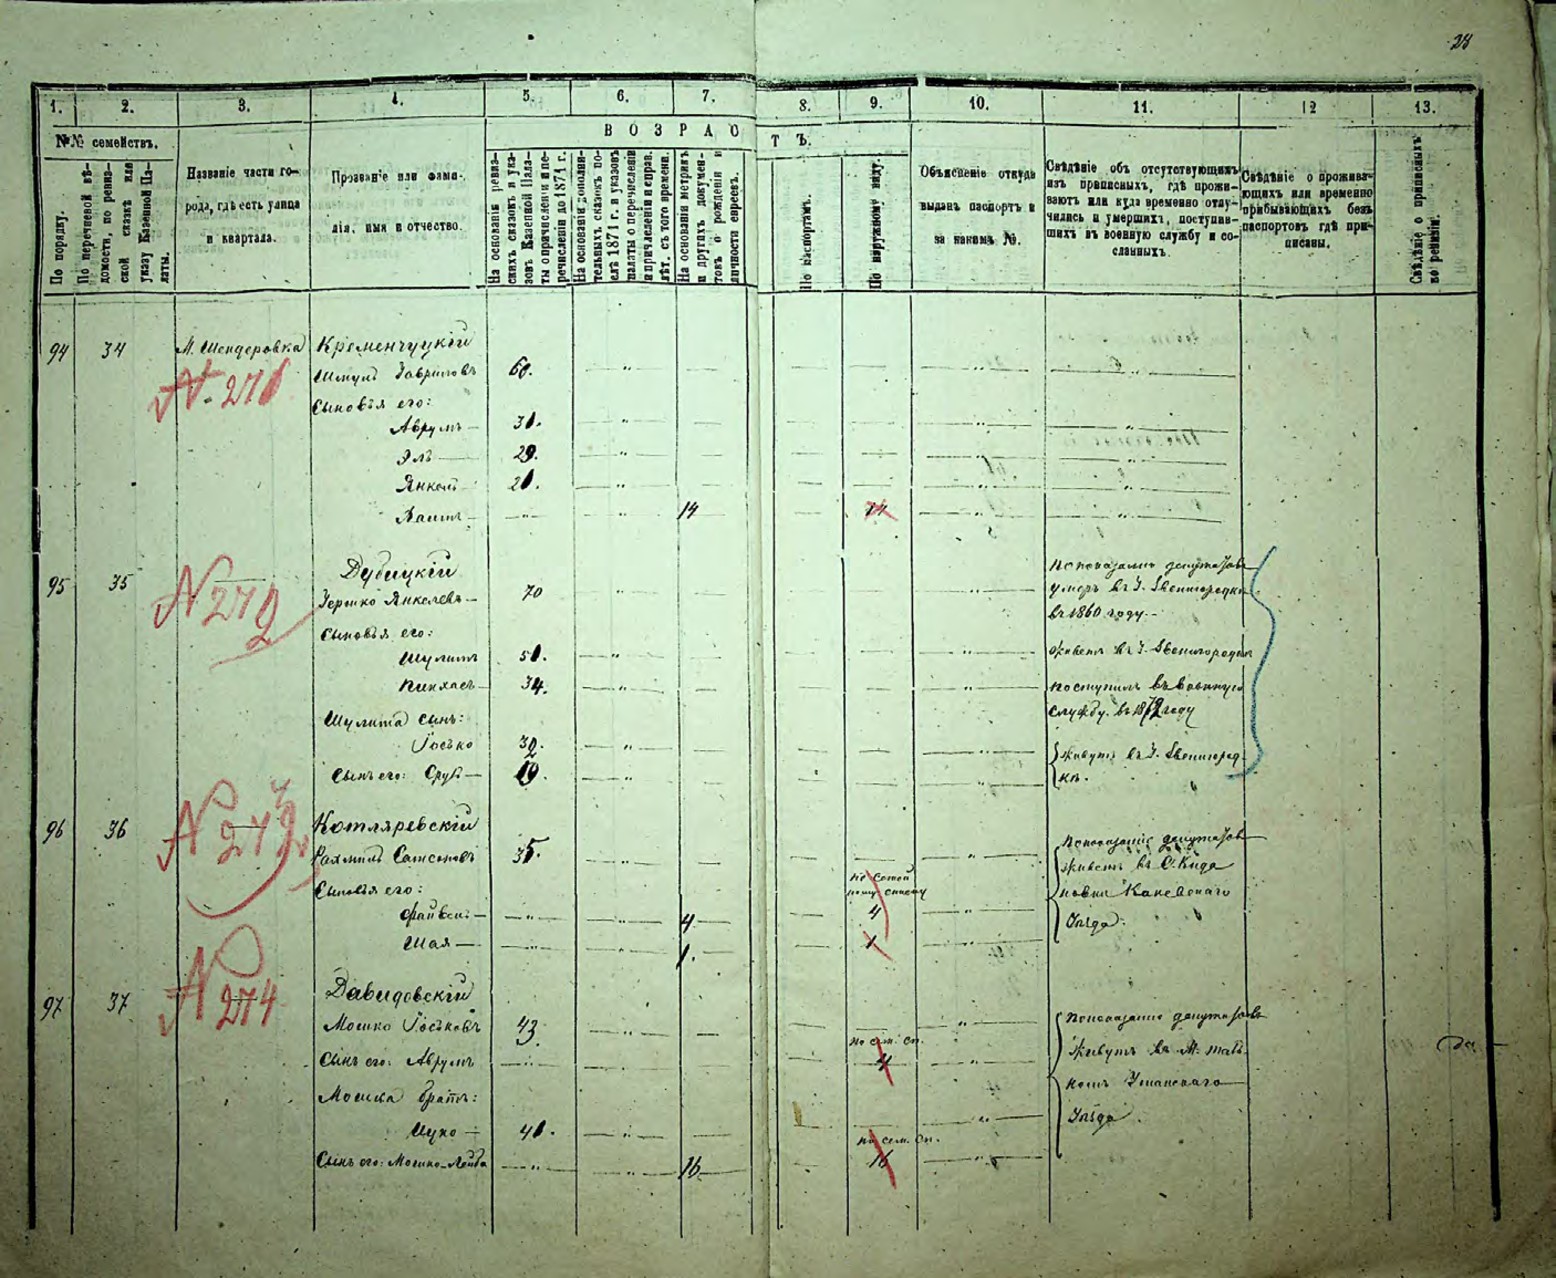 28
1. 2. 3. 4. 5. 6. 7. 8. 9. 10. 11. 12 13.
№№ семействъ.
В О З Р А С Т Ъ.
По порядку.
По перечневой вѣ-
домости, по ревиз-
ской сказкѣ или
указу Казенной Па-
латы.
Названіе части го-
рода, гдѣ есть улица
и квартала.
Прозваніе или фами-
лія, имя и отчество.
На основаніи ревиз-
скихъ сказокъ и ука-
зовъ Казенной Пала-
ты о причисленіи и пе-
речисленіи до 1874 г.
На основаніи дополни-
тельныхъ сказокъ по-
слѣ 1874 г. и указовъ
палаты о перечисленіи
и причисленіи и справ.
лѣт. съ того времени.
На основаніи метрикъ
и другихъ докумен-
товъ о рожденіи и
личности евреевъ.
По паспортамъ.
По наружному виду.
Объясненіе откуда
выданъ паспортъ и
за какимъ №.
Свѣдѣніе объ отсутствующихъ
изъ приписныхъ, гдѣ прожи-
ваютъ или куда временно отлу-
чились и умершихъ, поступив-
шихъ въ военную службу и со-
сланныхъ.
Свѣдѣніе о прожива-
ющихъ или временно
прибывающихъ безъ
паспортовъ гдѣ при-
писаны.
Свѣдѣніе о приписныхъ
по ревизіи.
94 34 М. Шендеровка Кременчуцкій
N. 271
Шмуль Гавриловъ 60.
Сыновья его:
Аврумъ 31.
Эль 29.
Янкель 21.
14 14
95 35 N 272 Дубицкій
По показанію депутатовъ
Гершко Янкелевъ 70 умеръ въ Г. Звенигородкѣ
въ 1860 году.
Сыновья его:
Шулимъ 51. Живетъ въ Г. Звенигородкѣ
Пинхасъ 34. Поступилъ въ военную
службу въ 1872 году
Шулима сынъ:
Іосько 32. Живутъ въ Г. Звенигород-
Сынъ его: Сруль 19. кѣ.
96 36 N 273 Котляревскій
По показанію депутатовъ
Рахмиль Самсоновъ 35. Живетъ въ С. Кида
Сыновья его: новки Каневскаго
Файвель 4 4 Уѣзда.
Шая 1. 1
97 37 N 274 Давидовскій
По показанію депутатовъ
Мошко Іоськовъ 43.
по сем. сп.
Сынъ его: Аврумъ 4 Живутъ въ М. Таль-
Мошка братъ: номъ Уманскаго
да
Ицко 41. Уѣзда.
по сем. сп.
Сынъ его: Мошко-Лейба 16 16